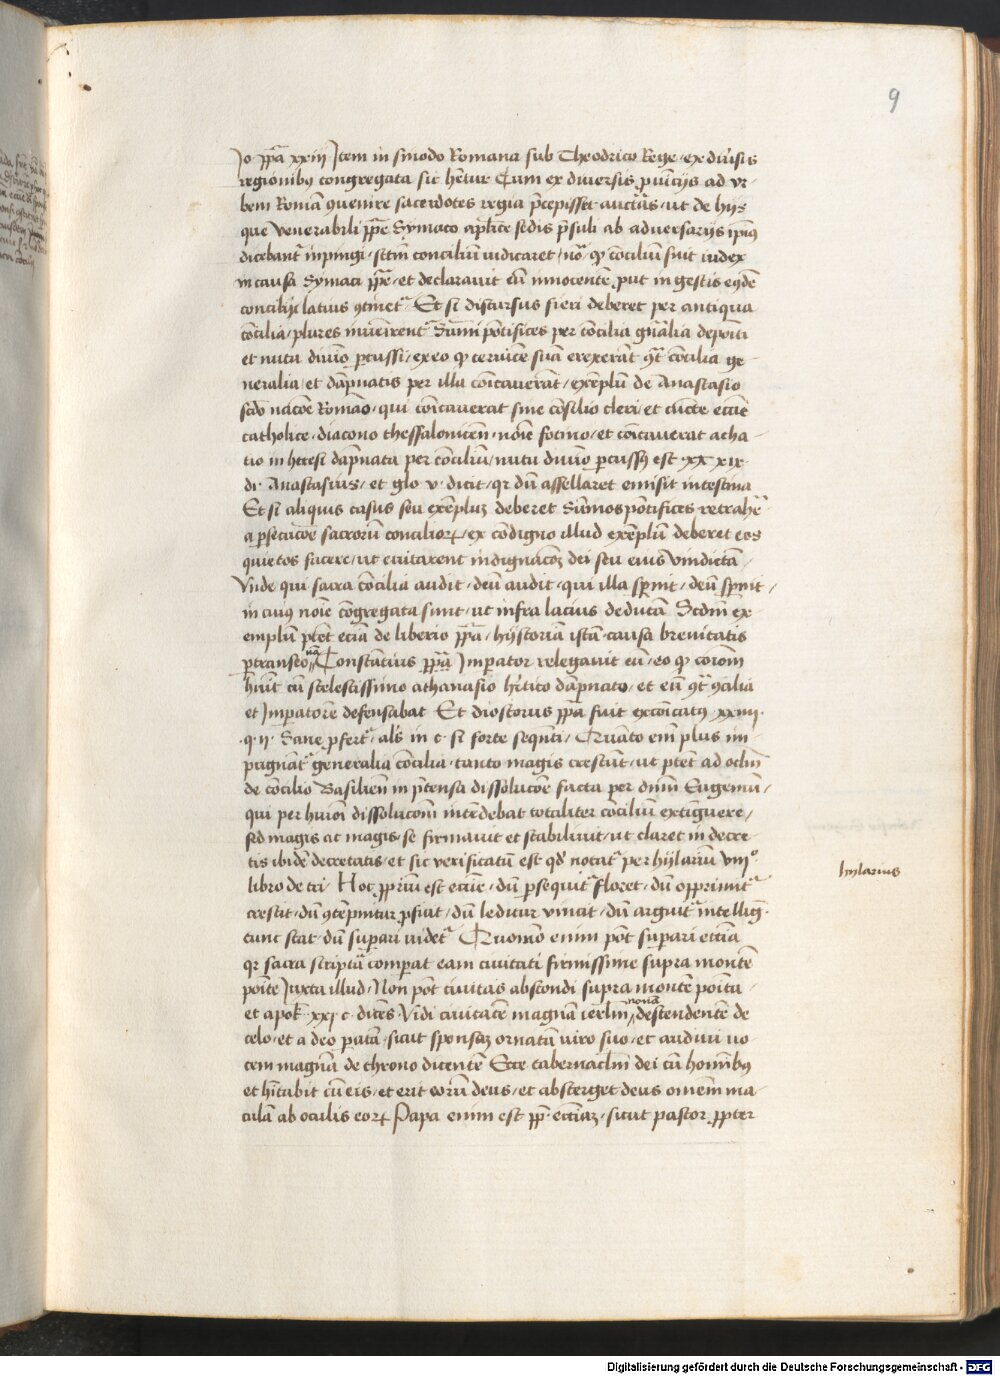 9
Jo. ppa xxiij Item in sinodo Romana sub Theodrico Rege, ex diūsis
regionibus congregata sic hetur Cum ex diversis puincijs ad vr-
bem Romā ꝯuenire sacerdotes regia p̄cepisset auctās, ut de hijs
que venerabili ppe Symaco aplice sedis p̄suli ab adversarijs ipius
dicebantr inpingi, sctm conciliū iudicaret, no qꝫ conciliū fuit iudex
in causa Symaci ppe, et declarauit eū innocentē put in gestis eqdē
concilij latius ꝯtinetr Et si discursus fieri deberet per antiqua
cōcilia, plures inueirentr Summi pōtifices per cōcilia gnalia depoiti
et nutu diuīo pcussi, ex eo qꝫ ceruicē suā erexerāt ꝯtra cōcilia ge-
neralia, et dāpnatis per illa cōicauerāt, exēplū de Anastasio
scdo nacōe Romāo, qui cōicauerat sine cōsilio cleri, et cūcte eccie
catholice, diacono thessalonicen, noīe fotino, et cōicauerat acha-
tio in heresi dāpnata per conciliū, nutu diuīo pcussus est xx xix
di. Anastasius, et glo v. dicit, qr dū assellaret emisit intestina
Et si aliquis casus seu exēpluꝫ deberet Summos pōtifices retrahe
a psecucōe sacrorū concilioꝝ, ex cōdigno illud exēplū deberet eos
quietos facere, ut euitarent indignacōꝫ dei seu eius vindictā,
Vnde qui sacra cōcilia audit, deū audit, qui illa spnit, deū spnit,
in cuius noīe cōgregata sunt, ut infra lacius deducā Scdm ex-
emplū ptet eciā de liberio ppa, hystoriā istā causa breuitatis
ptranseo, Constātius ppā Imperator relegauit eū, eo qꝫ coīom
huit cū scelestissimo athanasio hetico dāpnato, et eū ꝯtra ꝯcilia
et Imperatorē defensabat Et dioscorus ppa fuit excōicatus xxiiij.
q. ij. Sane pfertr, als in c. si forte sequēti, Quāto em plus im-
pugnātr generalia cōcilia, tanto magis crescūt, ut ptet ad oclm
de cōcilio Basilien in p̄tensa dissolucōe facta per dnm Eugeniū,
qui per huioi dissolucom intēdebat totaliter cōciliū extīguere,
sed magis ac magis se firmauit et stabiliuit, ut claret in decre-
tis ibidē decretatis, et sic verificatū est qd notatr per hylariū viijo
libro de tri. Hoc ppriū est eccie, dū psequitr floret, dū opprimitr
crescit, dū ꝯtēpnitur pficit, dū leditur vincit, dū arguitr intelligit
tunc stat, dū supari videtr Quomo enim pōt supari eccia
qr sacra scriptā comperat eam ciuitati firmissime supra montē
poīte Juxta illud, Non pōt ciuitas abscondi supra montē poita
et apok. xxj c. dices, Vidi ciuitatē magnā ierlm novā descendentē de
celo, et a deo patā, sicut sponsaꝫ ornatā viro suo, et audiui uo-
cem magnā de throno dicentē Ecce tabernaclm dei cū homībus
et hitabit cū eis, et erit eorū deus, et absterget deus omēm ma-
culā ab oculis eoꝝ Papa enim est pp. ecciaꝫ, sicut pastor ppter
hylarius
Digitalisierung gefördert durch die Deutsche Forschungsgemeinschaft - DFG